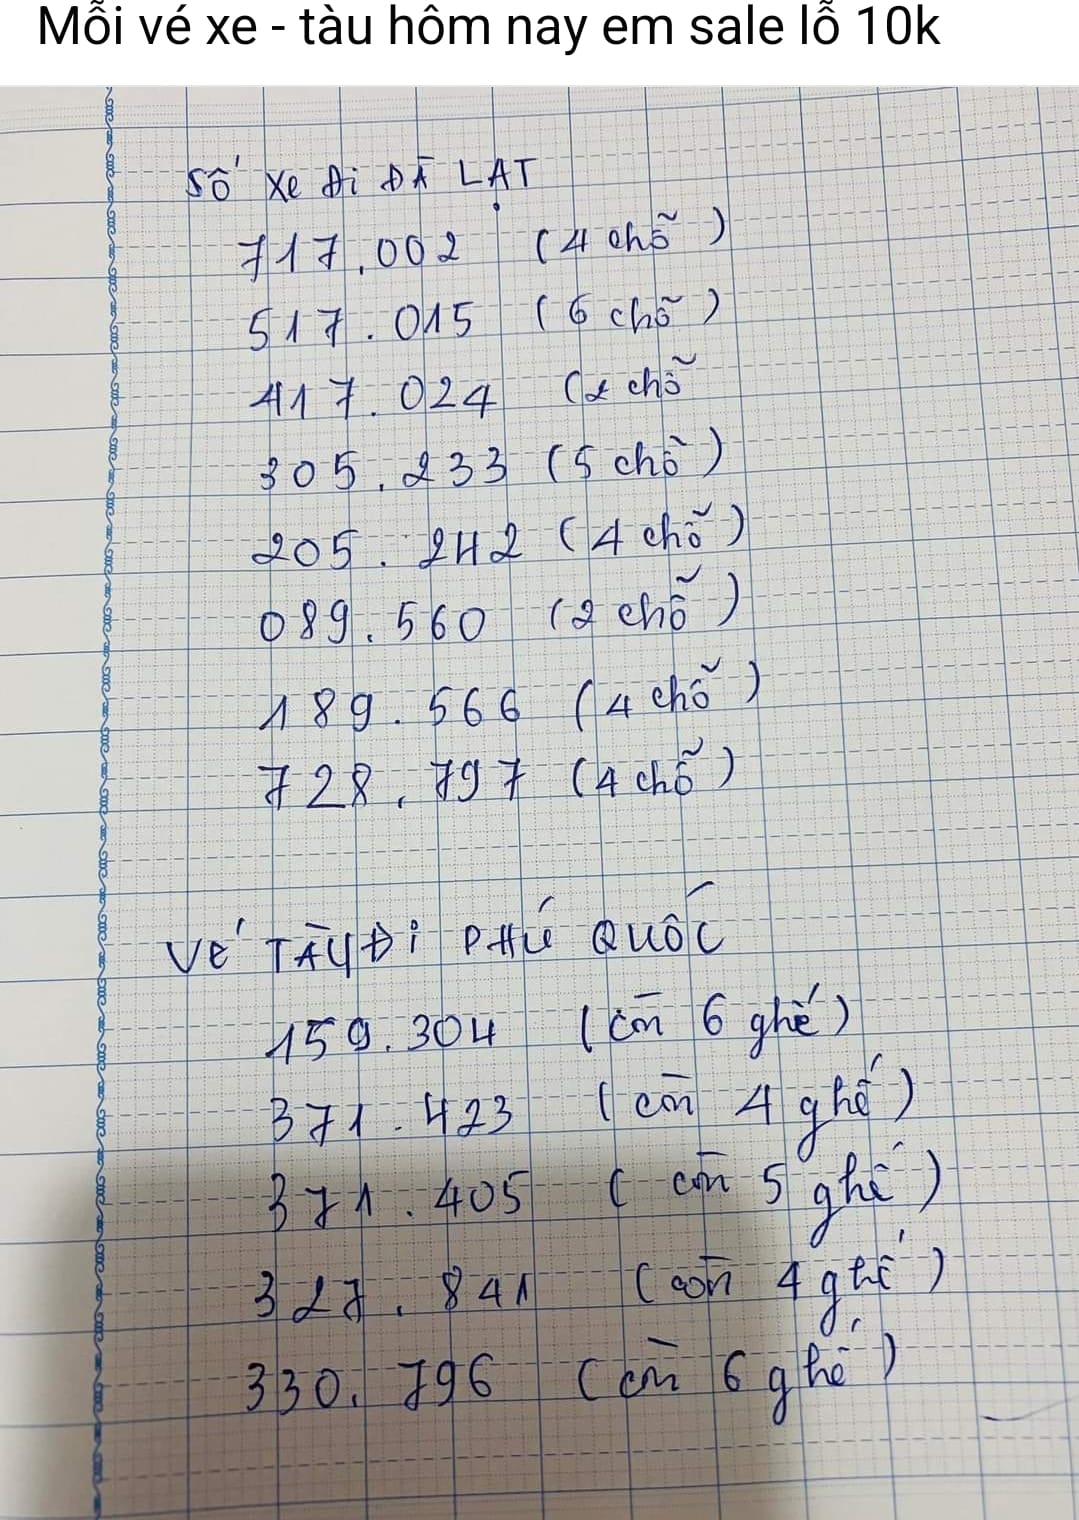 Mỗi vé xe - tàu hôm nay em sale lỗ 10k
Số xe Đi ĐÀ LẠT
717.002 (4 chỗ)
517.015 (6 chỗ)
417.024 (2 chỗ
305.233 (5 chỗ)
205.242 (4 chỗ)
089.560 (2 chỗ)
189.566 (4 chỗ)
728.797 (4 chỗ)
VÉ TÀU Đi PHÚ QUỐC
159.304 (còn 6 ghế)
371.423 (còn 4 ghế)
371.405 (còn 5 ghế)
327.841 (còn 4 ghế)
330.796 (còn 6 ghế)